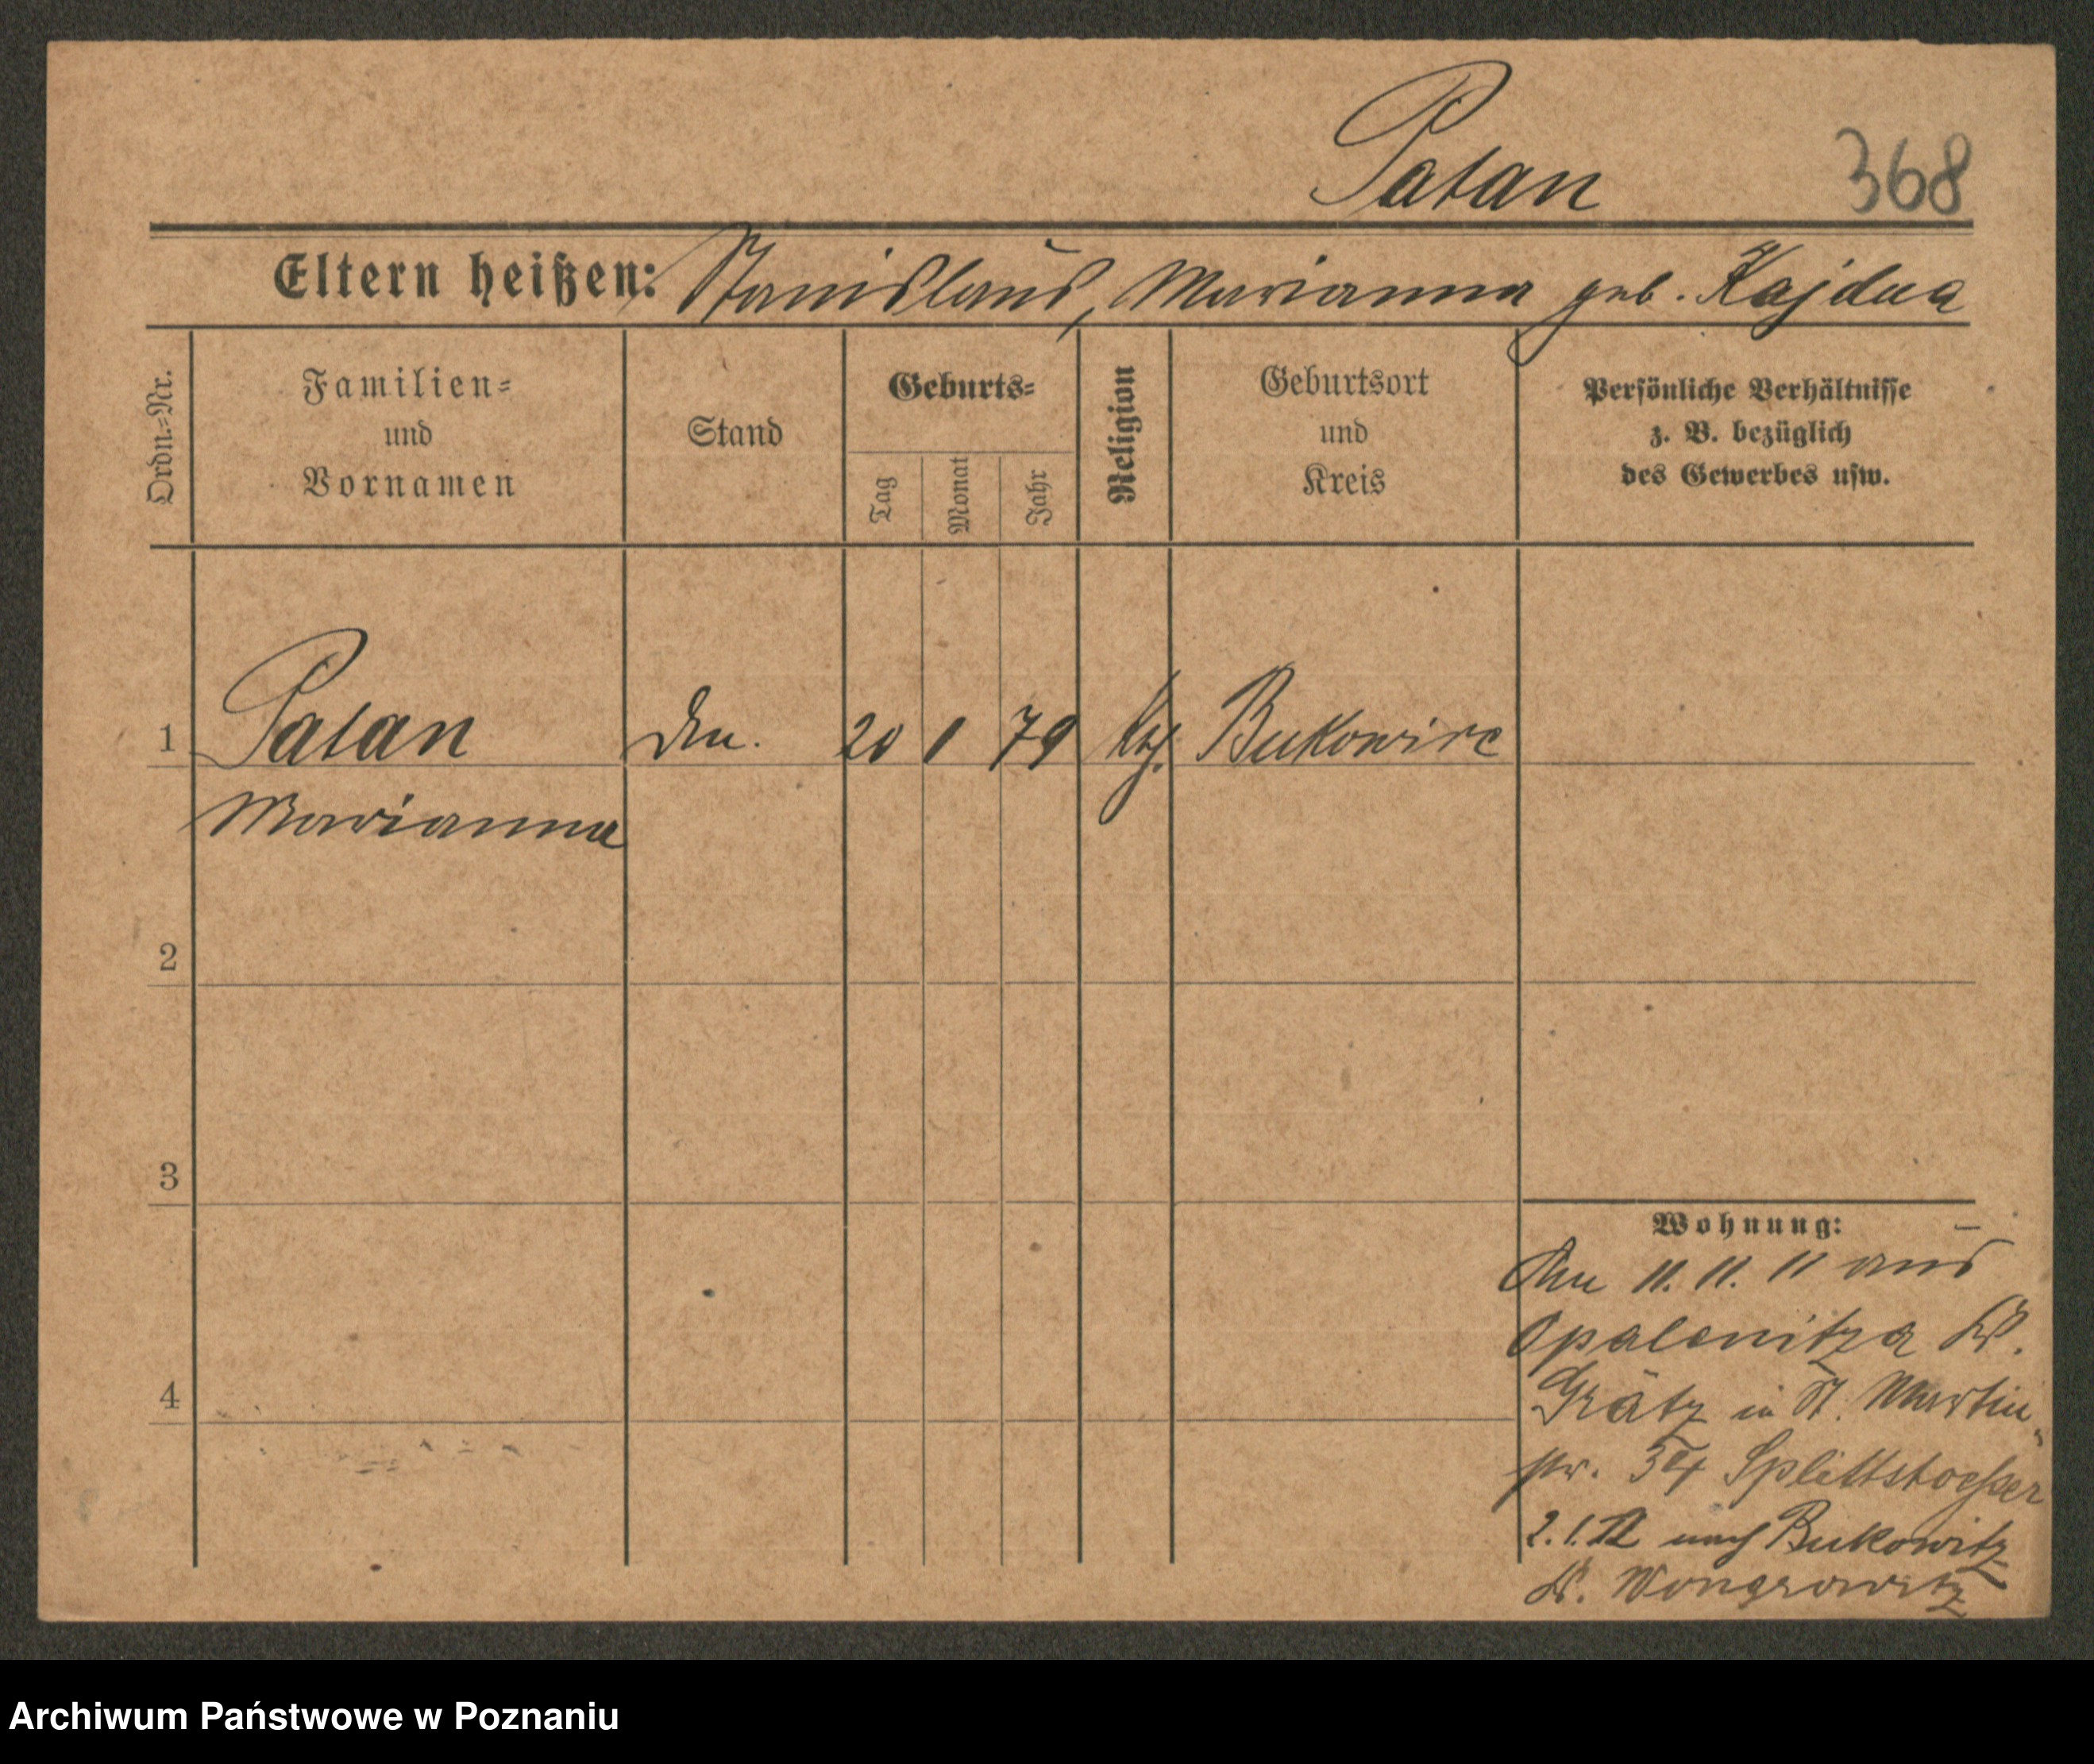 Patan 368
Eltern heißen: Stanislaus, Marianna geb. Kajdna
Ordn.=Nr.
Familien=
und
Vornamen
Stand
Geburts=
Tag
Monat
Jahr
Religion
Geburtsort
und
Kreis
Persönliche Verhältnisse
z. B. bezüglich
des Gewerbes usw.
1 Patan 20 1 79 Bukowiec
Marianna
2
3
4
Wohnung:
11. 11. 11 aus
Opalenitza Kr.
Grätz in St. Martin
str. 34 Splittstoesser
2.1.12 nach Bukowitz
Kr. Wongrowitz
Archiwum Państwowe w Poznaniu